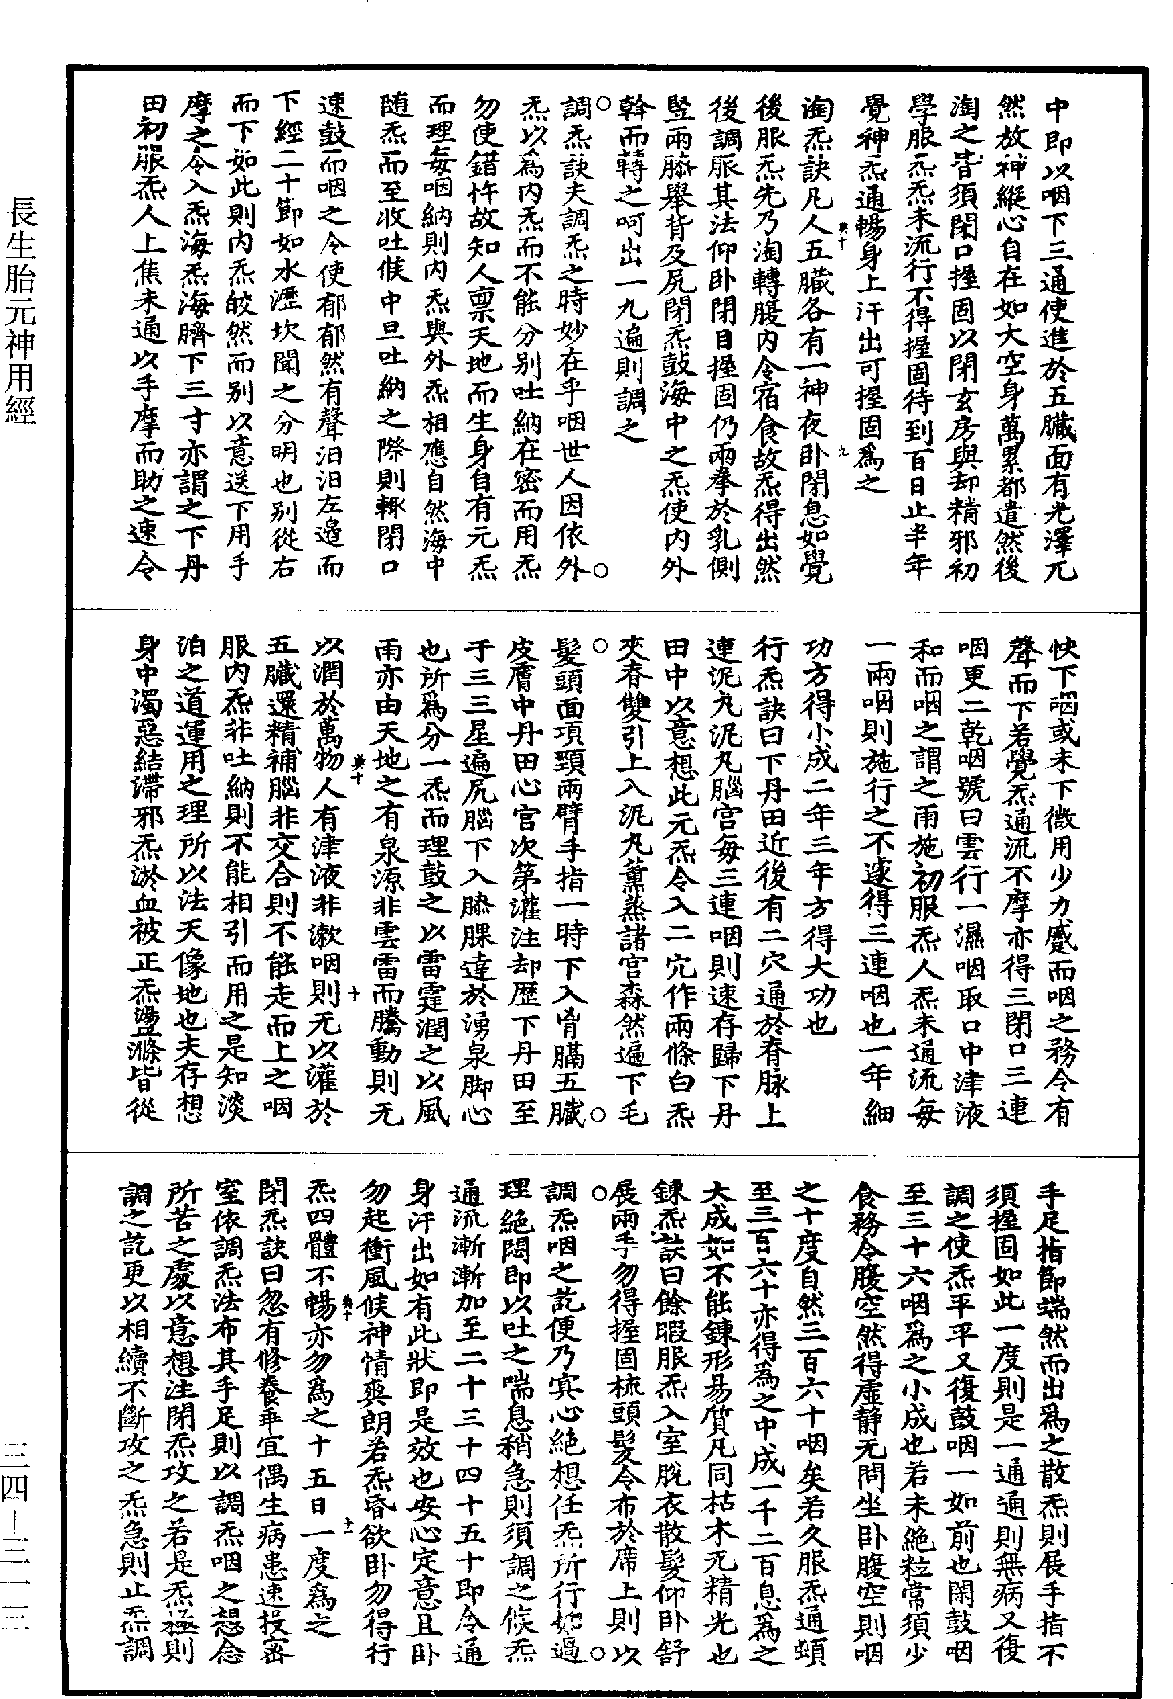 長生胎元神用經
中即以咽下三通使進於五臟面有光澤兀
然放神縱心自在如大空身萬累都遣然後
淘之皆須閉口握固以閉玄房與却精邪初
學服炁炁未流行不得握固待到百日止半年
覺神炁通暢身上汗出可握固為之
淘炁訣凡人五臟各有一神夜卧閉息如覺
後服炁先乃淘轉腹内令宿食故炁得出然
後調服其法仰卧閉目握固仍兩拳於乳側
竪兩膝舉背及尻閉炁鼓海中之炁使内外
斡而轉之呵出一九遍則調之
調炁訣夫調炁之時妙在乎咽世人因依外
炁以為内炁而不能分别吐納在密而用炁
勿使錯忤故知人稟天地而生身自有元炁
而理每咽納則内炁與外炁相應自然海中
随炁而至收吐候中旦吐納之際則輙閉口
速鼓而咽之令使郁郁然有聲汩汩左邊而
下經二十節如水瀝坎聞之分明也别從右
而下如此則内炁皎然而别以意送下用手
摩之令入炁海炁海臍下三寸亦謂之下丹
田初服炁人上焦未通以手摩而助之速令
快下咽或未下微用少力蹙而咽之務令有
聲而下若覺炁通流不摩亦得三閉口三連
咽更二乾咽號曰雲行一濕咽取口中津液
和而咽之謂之雨施初服炁人炁未通流每
一兩咽則施行之不遂得三連咽也一年細
功方得小成二年三年方得大功也
行炁訣曰下丹田近後有二穴通於脊脉上
連泥丸泥丸腦宫每三連咽則速存歸下丹
田中以意想此元炁令入二穴作兩條白炁
夾脊雙引上入泥丸薰蒸諸宫森然遍下毛
髮頭面項頸兩臂手指一時下入胷膈五臟
皮膚中丹田心官次第灌注却歷下丹田至
于三三星遍尻腦下入膝踝達於湧泉脚心
也所為分一炁而理鼓之以雷霆潤之以風
雨亦由天地之有泉源非雲雷而騰動則无
以潤於萬物人有津液非漱咽則无以灌於
五臟還精補腦非交合則不能走而上之咽
服内炁非吐納則不能相引而用之是知淡
泊之道運用之理所以法天像地也夫存想
身中濁惡結滯邪炁淤血被正炁盪滌皆從
手足指節端然而出為之散炁則展手指不
須握固如此一度則是一通通則無病又復
調之使炁平平又復鼓咽一如前也閉鼓咽
至三十六咽為之小成也若未絶粒常須少
食務令腹空然得虛静无問坐卧腹空則咽
之十度自然三百六十咽矣若久服炁通頓
至三百六十亦得為之中成一千二百息為之
大成如不能鍊形易質凡同枯木死精光也
鍊炁訣曰餘暇服炁入室脱衣散髮仰卧舒
展兩手勿得握固梳頭髮令布於席上則以
調炁咽之訖便乃㝠心絶想任炁所行如過
理絶悶即以吐之喘息稍急則須調之候炁
通流漸漸加至二十三十四十五十即令通
身汗出如有此狀即是效也安心定意且卧
勿起衝風候神情爽朗若炁昏欲卧勿得行
炁四體不暢亦勿為之十五日一度為之
閉炁訣曰忽有修養乖宜偶生病患速投密
室依調炁法布其手足則以調炁咽之想念
所苦之處以意想注閉炁攻之若是炁極則
調之訖更以相續不斷攻之炁急則止炁調
三四-三一三